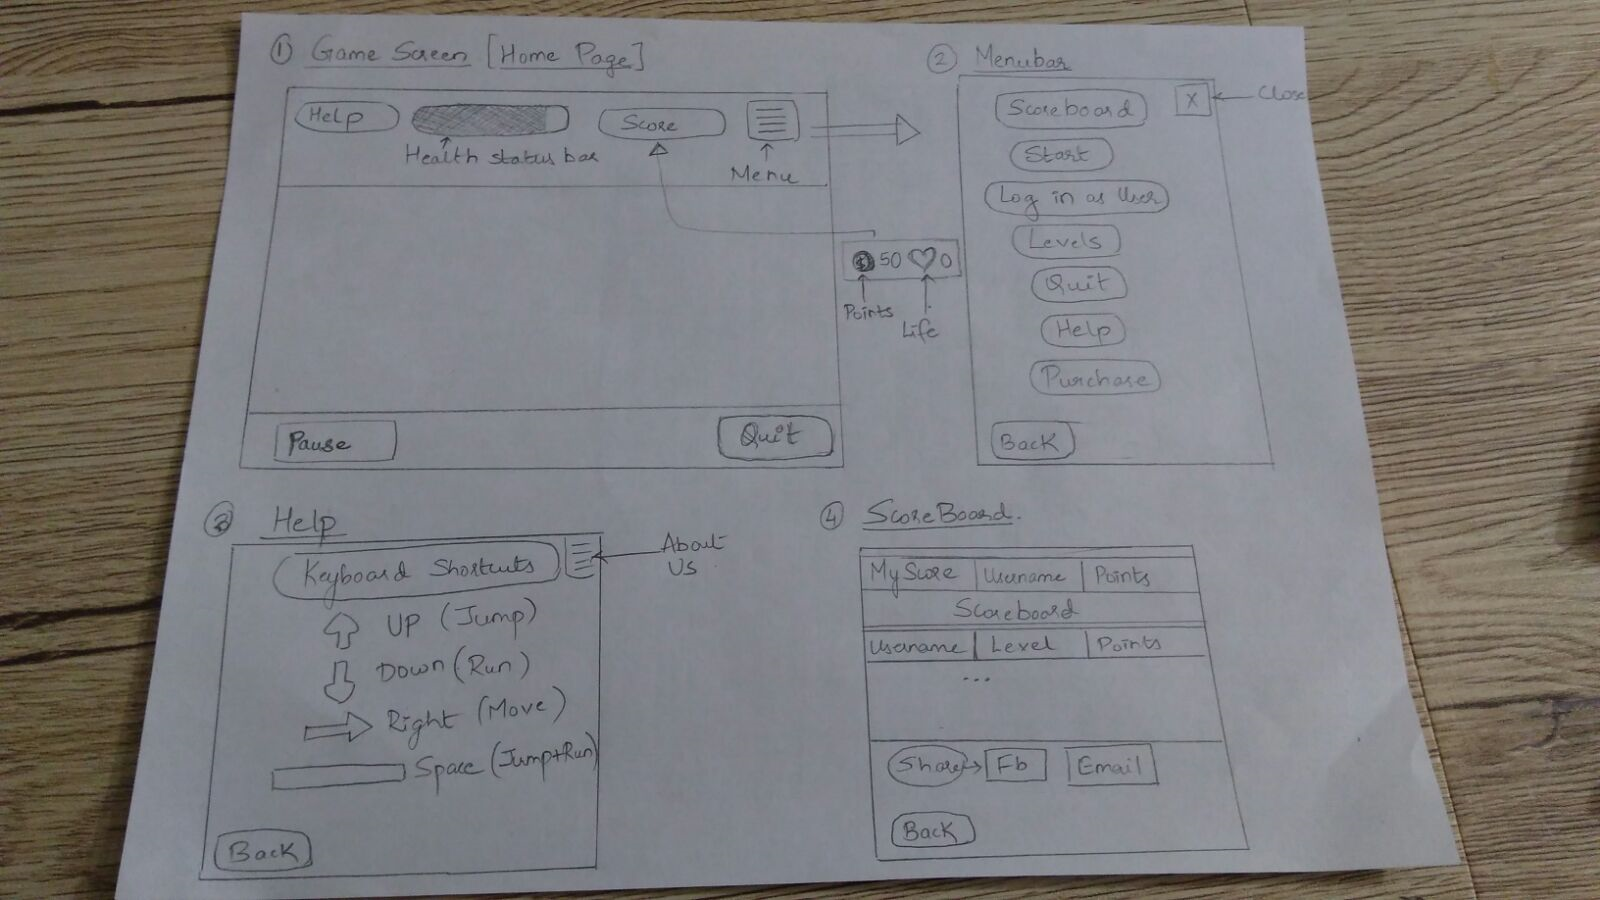 ① Game Screen [Home Page]
Help
Score
Health status bar
Menu
$ 50 0
Points
Life
Pause
Quit
② Menubar
Scoreboard
X
Close
Start
Log in as User
Levels
Quit
Help
Purchase
Back
③ Help
Keyboard Shortcuts
About
US
UP (Jump)
Down (Run)
Right (Move)
Space (Jump+Run)
Back
④ ScoreBoard.
My Score Username Points
Scoreboard
Username Level Points
...
Share Fb Email
Back